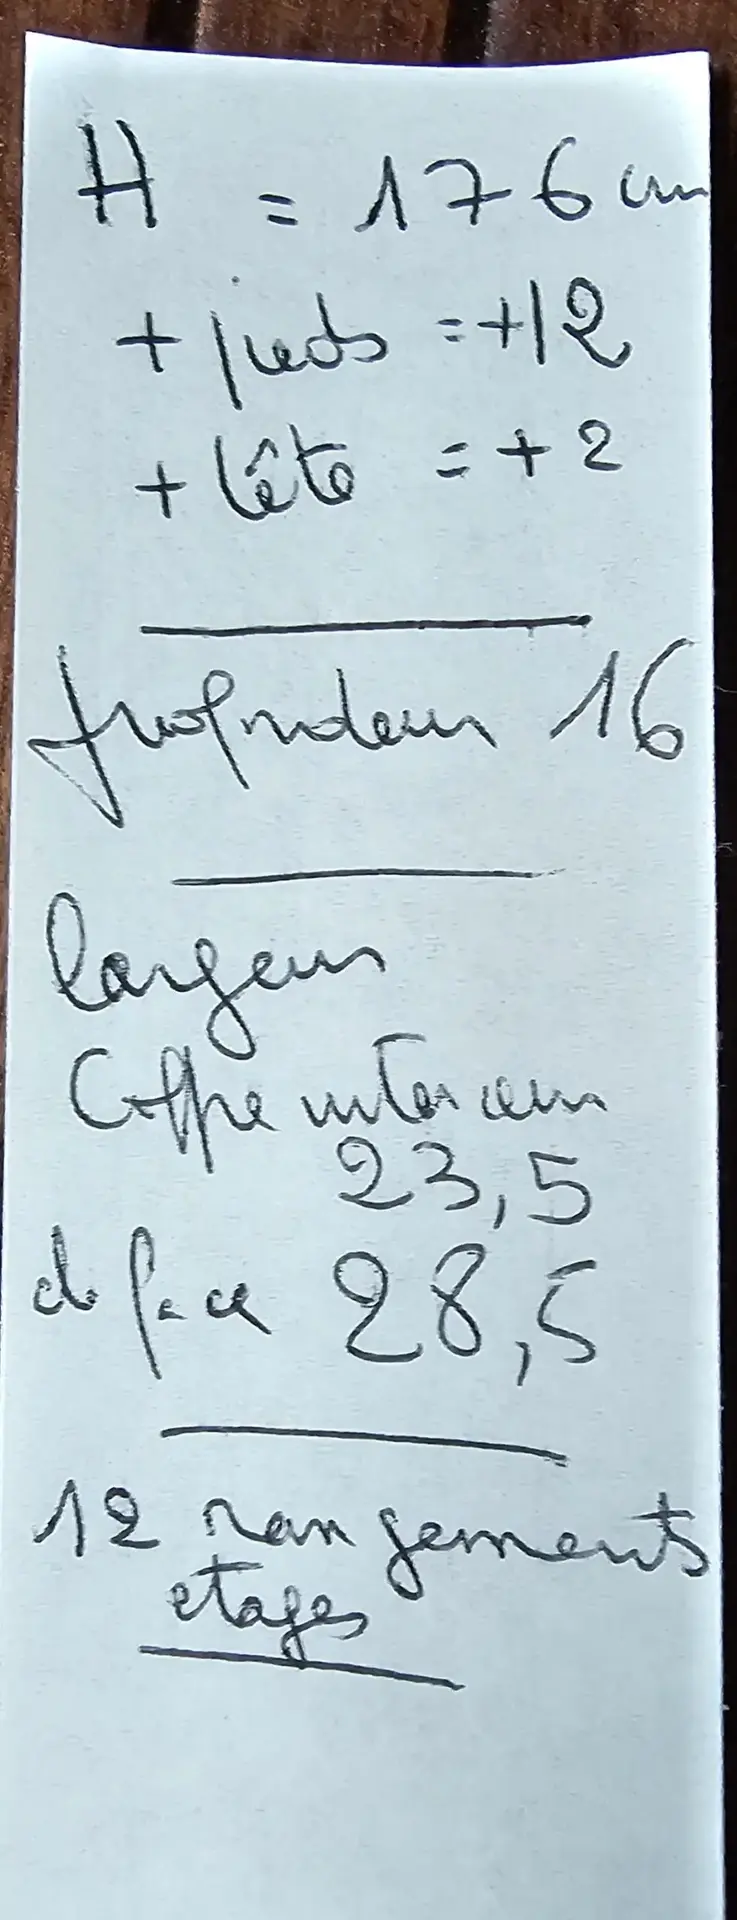 H = 176 cm
+ pieds = +12
+ tête = + 2
profondeur 16
largeur
Coffre intérieur
23,5
de face 28,5
12 rangements
etages